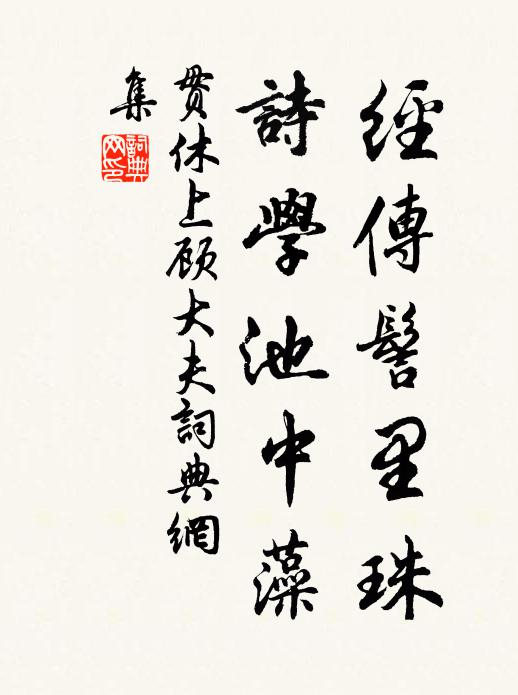 經傳髻里珠
詩學池中藻
貫休上顾大夫詞典網
集
詞典
网印